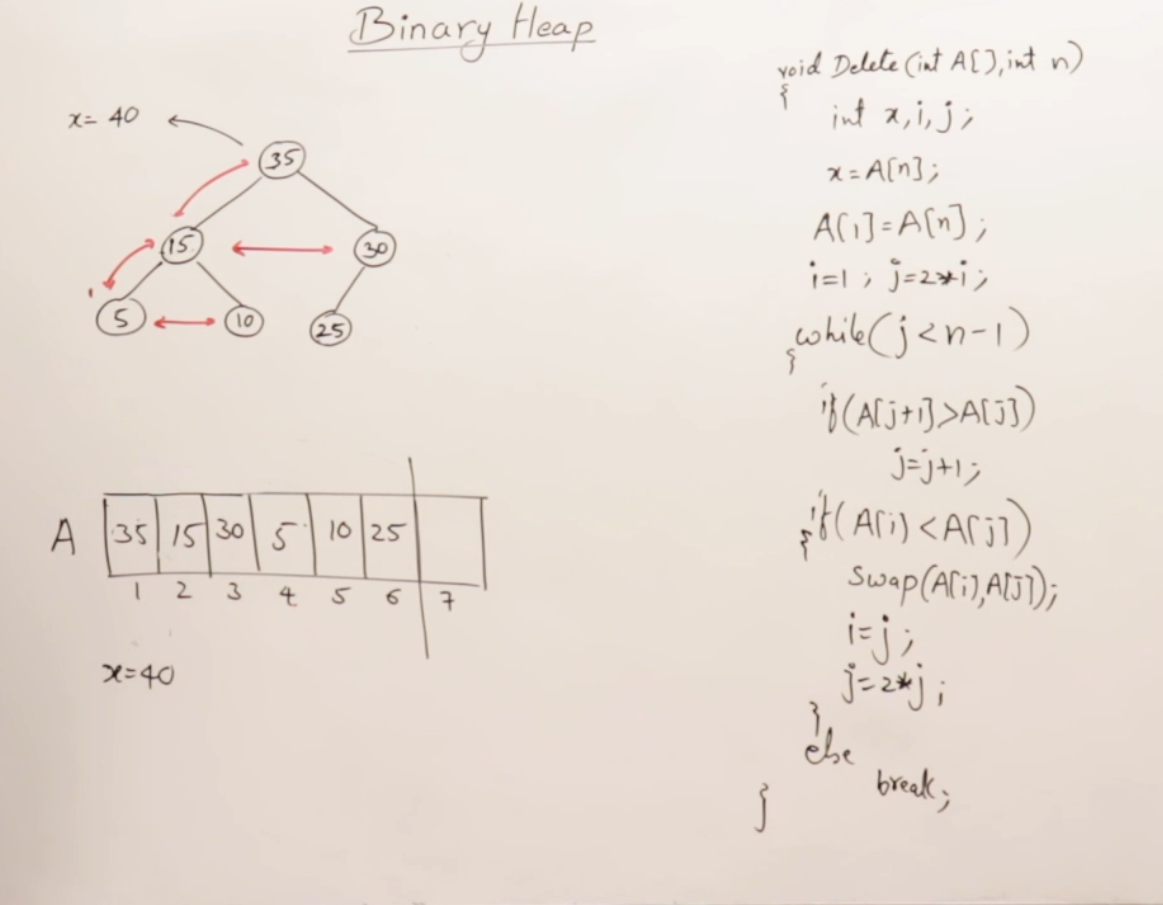 Binary Heap
x= 40
35
15
30
5
10
25
A
35 15 30 5 10 25
1 2 3 4 5 6 7
x=40
void Delete(int A[],int n)
{
int x,i,j;
x=A[n];
A[1]=A[n];
i=1; j=2*i;
while(j<n-1)
{
if(A[j+1]>A[j])
j=j+1;
if(A[i]<A[j])
{
Swap(A[i],A[j]);
i=j;
j=2*j;
}
else
break;
}